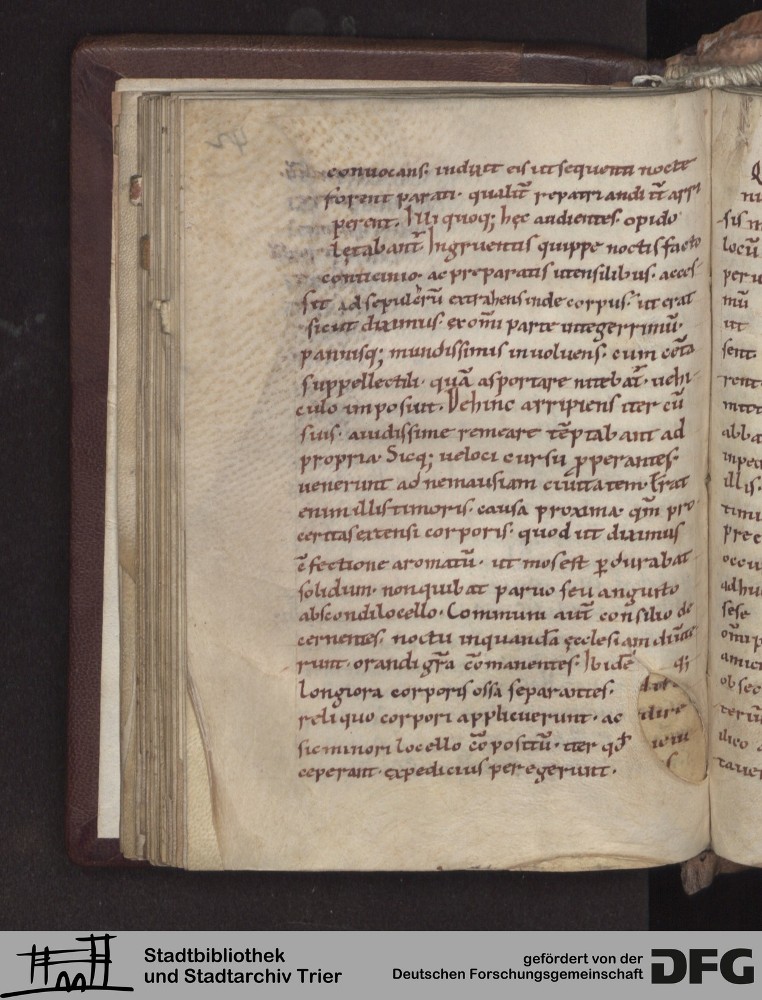 convocans. induxit eis ut sequenti nocte
forent parati. qualit̄ repatriandi it̄ arri
perent. Illi quoq; hęc audientes. opido
lętabant̄. Ingruentis quippe noctis facto
conticinio. ac preparatis utensilibus. acces
sit ad sepulcrū extrahens inde corpus. ut erat
sicut diximus. ex om̄i parte integerrimū.
pannisq; mundissimis involuens. cum cęta
suppellectili. quā asportare nitebat̄. uehi
culo imposuit. Dehinc arripiens iter cū
suis. auidissime remeare tēptabant ad
propria. Sicq; ueloci cursu ꝓperantes.
uenerunt ad nemausiam ciuitatem. Erat
enim illis timoris causa proxima. qm̄ pro
ceritas extensi corporis. quod ut diximus
cōfectione aromatū. ut mos est ꝑdurabat
solidum. non quibat paruo seu angusto
abscondi locello. Communi aut̄ consilio de
cernentes. noctu in quandā ęcclesiam
runt. orandi gr̄a cōmanentes. Ibidē q;
longiora corporis ossa separantes.
reliquo corpori applicuerunt. ac
sic minori locello cōpositū. iter qd̄
ceperant. expedicius peregerunt.
Stadtbibliothek
und Stadtarchiv Trier
gefördert von der
Deutschen Forschungsgemeinschaft
DFG